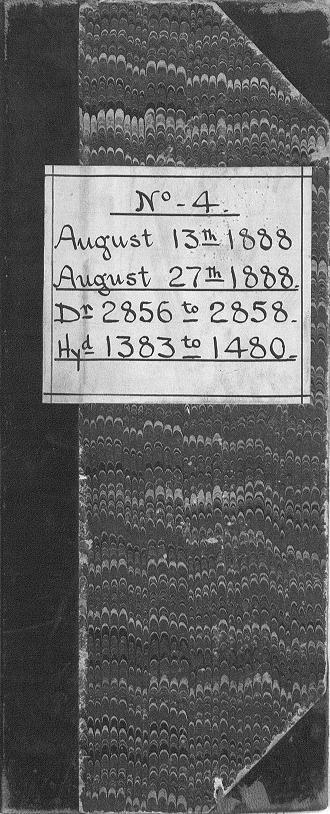 No - 4.
August 13th 1888
August 27th 1888.
Dr 2856 to 2858.
Hyd 1383 to 1480.